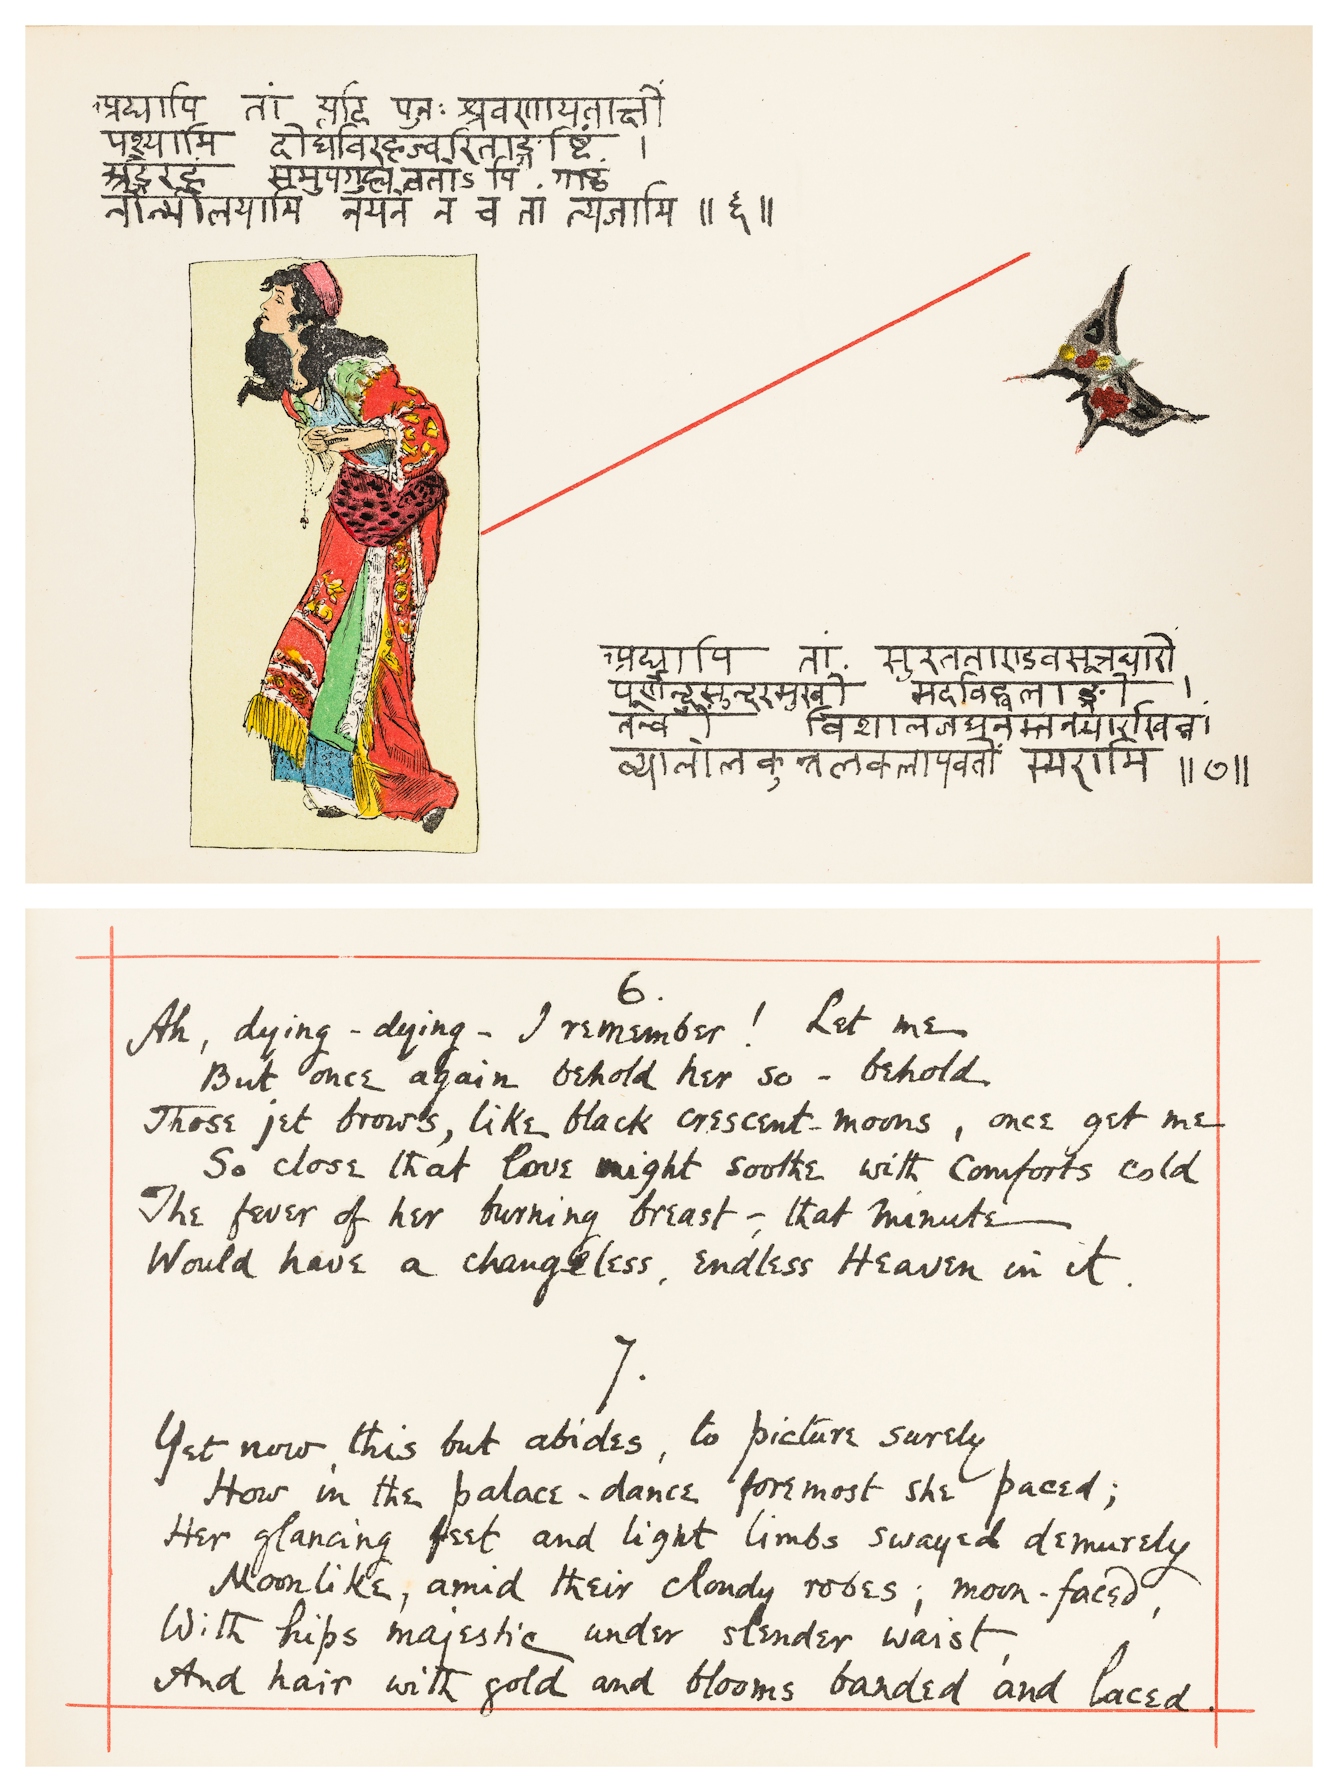 अद्यापि तां यदि पुनः श्रवणायताक्षीं
पश्यामि दीर्घविरहज्वरिताङ्गयष्टिं ।
अङ्गैरहं समुपगुह्य ततोऽपि गाढं
नोन्मीलयामि नयने न च तां त्यजामि ॥ ६ ॥
अद्यापि तां सुरतताण्डवसूत्रधारीं
पूर्णेन्दुसुन्दरमुखीं मदविह्वलाङ्गीं ।
तन्वीं विशालजघनस्तनभारखिन्नां
व्यालोलकुन्तलकलापवतीं स्मरामि ॥ ७ ॥
6.
Ah, dying - dying - I remember! Let me
But once again behold her so - behold
Those jet brows, like black crescent-moons, once get me
So close that love might soothe with comforts cold
The fever of her burning breast -, that minute
Would have a changeless, endless Heaven in it.
7.
Yet now, this but abides, to picture surely
How in the palace-dance foremost she paced;
Her glancing feet and light limbs swayed demurely
Moonlike, amid their cloudy robes; moon-faced,
With hips majestic under slender waist,
And hair with gold and blooms banded and laced.